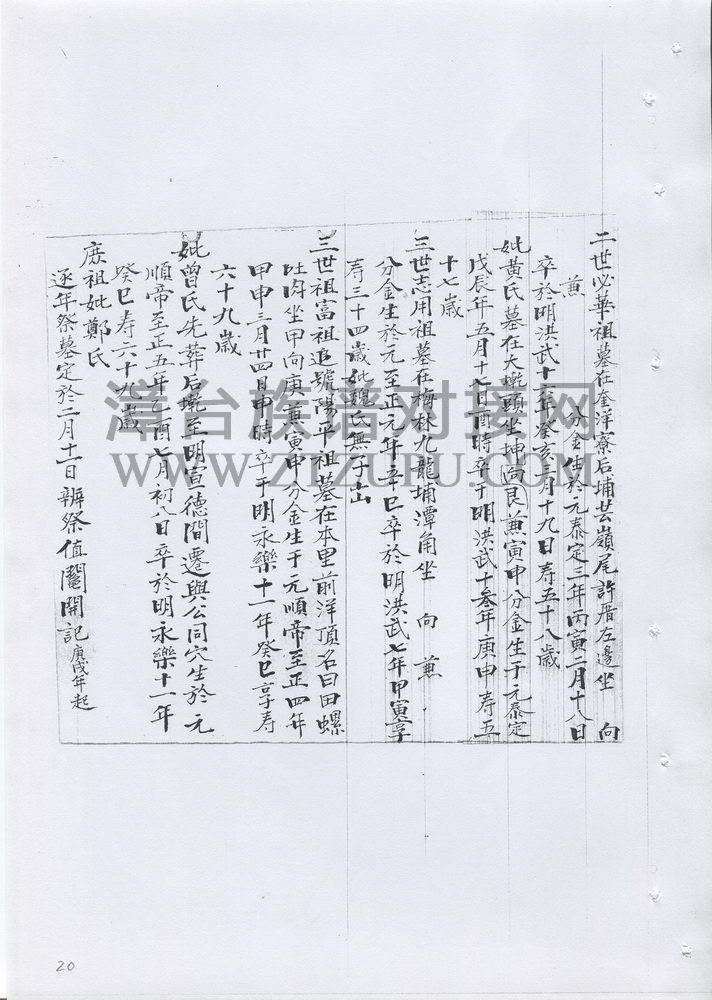 二世必華祖墓在奎洋寮后埔芸嶺尾許厝左邊坐 向
兼 分金生於元泰定三年丙寅二月十八日
卒於明洪武十六年癸亥三月十九日寿五十八歲
妣黃氏墓在大墘頭坐坤向艮兼寅申分金生于元泰定
戊辰年五月十七日酉時卒于明洪武十叁年庚申寿五
十七歲
三世志用祖墓在梅林九龍埔潭角坐 向 兼
分金生於元至正元年辛巳卒於明洪武七年甲寅享
寿三十四歲妣魏氏無子出
三世祖富祖追號陽平祖墓在本里前洋頂名曰田螺
吐肉坐甲向庚兼寅申分金生于元順帝至正四年
甲申三月廿四日申時卒于明永樂十一年癸巳享寿
六十九歲
妣曾氏先葬后墘至明宣德間遷與公同穴生於元
順帝至正五年 酉七月初八日卒於明永樂十一年
癸巳寿六十九歲
庶祖妣鄭氏
逐年祭墓定於二月十一日辦祭值鬮開記庚戌年起
漳台族谱对接网
WWW.ZTZUPU.COM
20